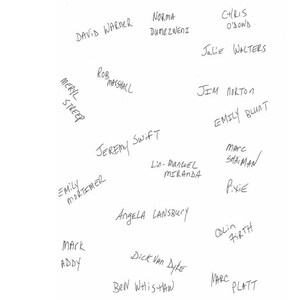 DAVID WARNER
NORMA
DUMEZWENI
CHRIS
O'DOWD
JULIE WALTERS
MERYL
STREEP
ROB
MARSHALL
JIM NORTON
EMILY BLUNT
JEREMY SWIFT
LIN-MANUEL
MIRANDA
MARC
SHAIMAN
EMILY
MORTIMER
PIXIE
ANGELA LANSBURY
COLIN
FIRTH
MARK
ADDY
DICK VAN DYKE
BEN WHISHAW
MARC
PLATT